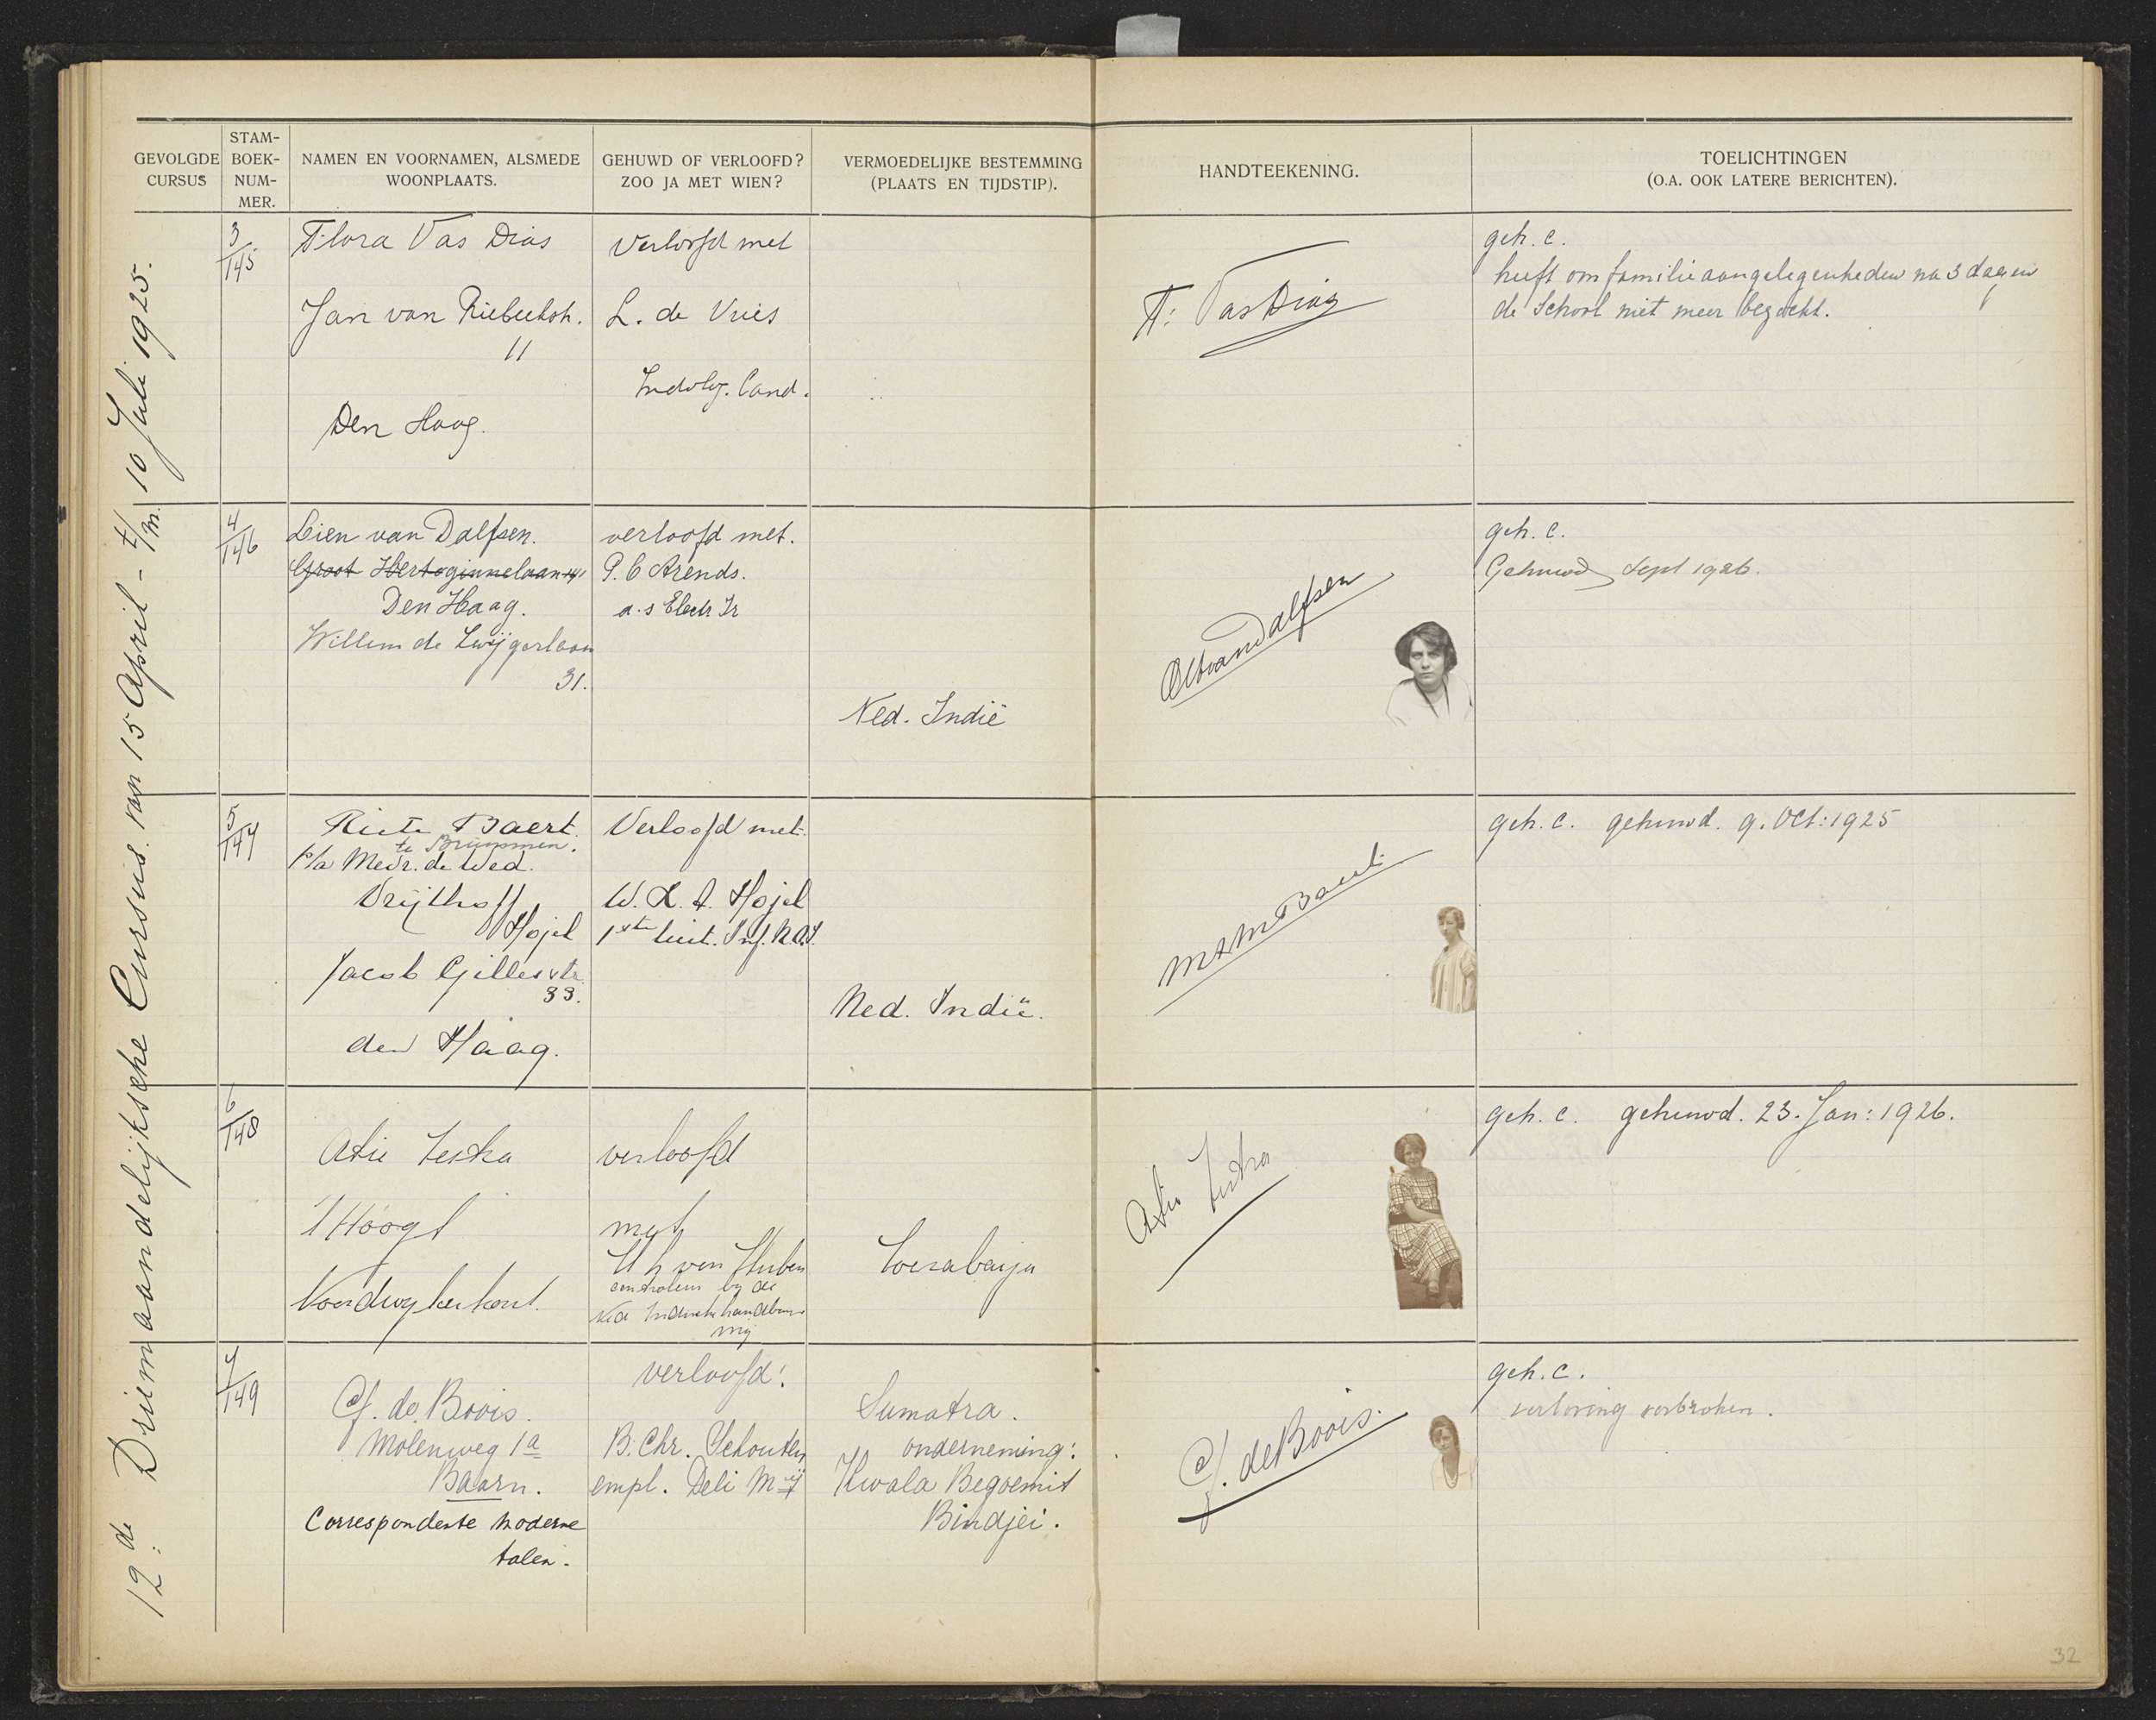 GEVOLGDE CURSUS
STAM-BOEK-NUM-MER.
NAMEN EN VOORNAMEN, ALSMEDE WOONPLAATS.
GEHUWD OF VERLOOFD? ZOO JA MET WIEN?
VERMOEDELIJKE BESTEMMING (PLAATS EN TIJDSTIP).
HANDTEEKENING.
TOELICHTINGEN (O.A. OOK LATERE BERICHTEN).
12de Driemaandelijksche Cursus van 15 April - t/m 10 Juli 1925.
3/145
Flora Vas Dias
Jan van Riebeekstr.
11
Den Haag.
Verloofd met
L. de Vries
Indolog. Cand.
F. Vas Dias
geh. c.
heeft om familieaangelegenheden na 3 dagen
de School niet meer bezocht.
4/146
Lien van Dalfsen.
Groot Hertoginnelaan
Den Haag.
Willem de Zwijgerlaan
31.
verloofd met.
P. C Arends.
a.s Electr Ir
Ned. Indië
van Dalfsen
geh. c.
Gehuwd Sept 1926.
5/147
Riete Baert.
te Brummen.
p/a Mevr. de Wed.
Vrijthoff
Hojel
Jacob Gillesstr
33.
den Haag.
Verloofd met.
W. L. A. Hojel
1ste luit. Inf. K.N.I.
Ned. Indië.
Baert
geh. c. gehuwd. 9. Oct: 1925
6/148
Atie Testra
't Hoogt
Noordwijkerhout.
verloofd
met
controleur bij de
Ned Indische handels
mij
Soerabaija
Atie Testra
geh. c. gehuwd. 23. Jan: 1926.
7/149
C.J. de Boois.
Molenweg 1a
Baarn.
Correspondente moderne
talen.
verloofd:
B. Chr. Schouten
empl. Deli Mij
Sumatra.
onderneming:
Kwala Begoemit
Bindjei.
C.J. de Boois.
geh. c.
verloving verbroken.
32